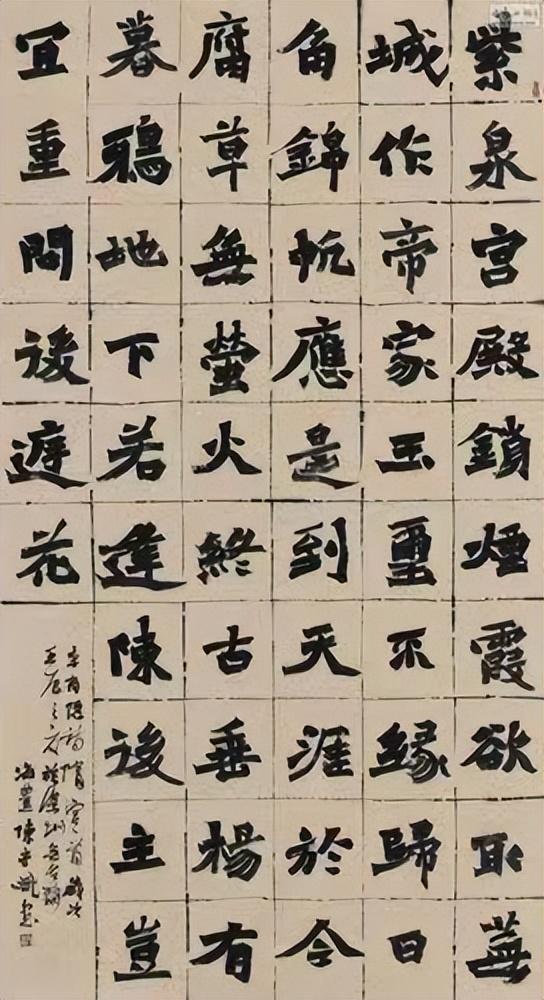 紫泉宮殿鎖煙霞欲取蕪
城作帝家玉璽不緣歸日
角錦帆應是到天涯於今
腐草無螢火終古垂楊有
暮鴉地下若逢陳後主豈
宜重問後庭花
李商隱詩隋宮一首歲次
壬辰之夏於深圳
海豐陳